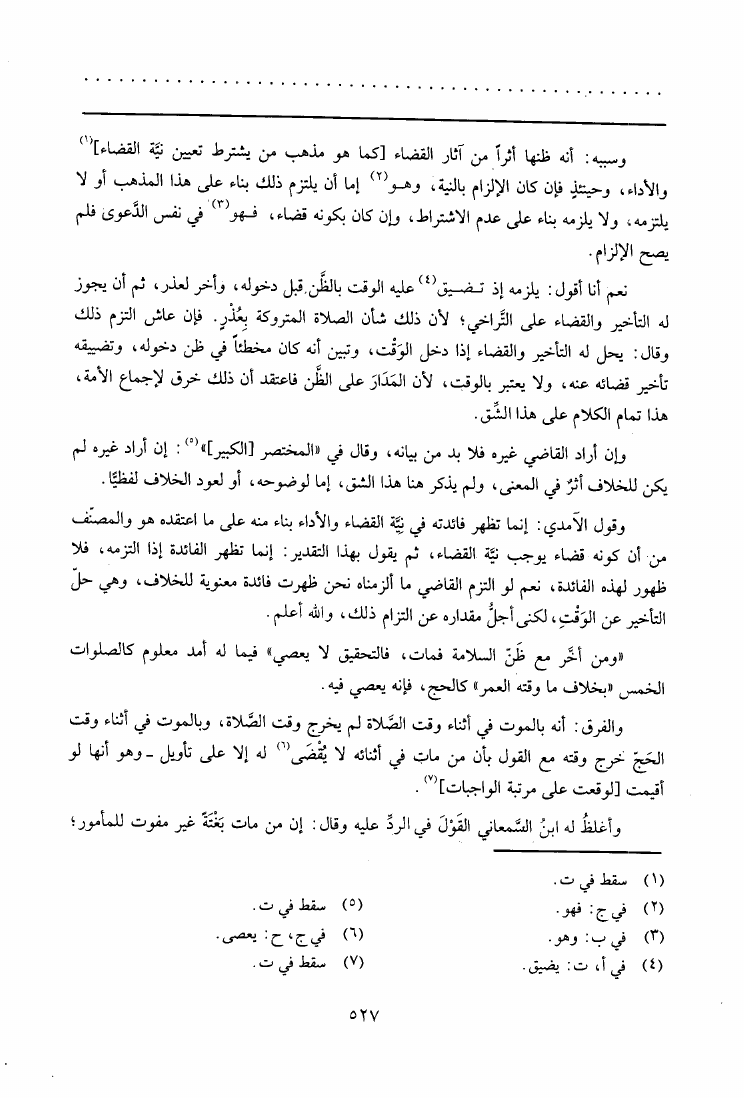 وسببه: أنه ظنها أثراً من آثار القضاء [كما هو مذهب من يشترط تعيين نيَّة القضاء](١)
والأداء، وحينئذٍ فإن كان الإلزام بالنية، وهـو(٢) إما أن يلتزم ذلك بناء على هذا المذهب أو لا
يلتزمه، ولا يلزمه بناء على عدم الاشتراط، وإن كان بكونه قضاء، فـهو(٣) في نفس الدَّعوى فلم
يصح الإلزام.
نعم أنا أقول: يلزمه إذ تـضـيق(٤) عليه الوقت بالظَّن قبل دخوله، وأخر لعذر، ثم أن يجوز
له التأخير والقضاء على التَّراخي؛ لأن ذلك شأن الصلاة المتروكة بِعُذْرٍ. فإن عاش التزم ذلك
وقال: يحل له التأخير والقضاء إذا دخل الوَقْت، وتبين أنه كان مخطئاً في ظن دخوله، وتضييقه
تأخير قضائه عنه، ولا يعتبر بالوقت، لأن المَدَارَ على الظَّن فاعتقد أن ذلك خرق لإجماع الأمة،
هذا تمام الكلام على هذا الشِّق.
وإن أراد القاضي غيره فلا بد من بيانه، وقال في «المختصر [الكبير]»(٥): إن أراد غيره لم
يكن للخلاف أثرٌ في المعنى، ولم يذكر هنا هذا الشق، إما لوضوحه، أو لعود الخلاف لفظيًّا.
وقول الآمدي: إنما تظهر فائدته في نِيَّة القضاء والأداء بناء منه على ما اعتقده هو والمصنّف
من أن كونه قضاء يوجب نيَّة القضاء، ثم يقول بهذا التقدير: إنما تظهر الفائدة إذا التزمه، فلا
ظهور لهذه الفائدة، نعم لو التزم القاضي ما ألزمناه نحن ظهرت فائدة معنوية للخلاف، وهي حلّ
التأخير عن الوَقْتِ، لكنى أجلُّ مقداره عن التزام ذلك، والله أعلم.
«ومن أخَّر مع ظَنّ السلامة فمات، فالتحقيق لا يعصي» فيما له أمد معلوم كالصلوات
الخمس «بخلاف ما وقته العمر» كالحج، فإنه يعصي فيه.
والفرق: أنه بالموت في أثناء وقت الصَّلاة لم يخرج وقت الصَّلاة، وبالموت في أثناء وقت
الحَجّ خرج وقته مع القول بأن من مات في أثنائه لا يُقْضَى(٦) له إلا على تأويل ـ وهو أنها لو
أقيمت [لوقعت على مرتبة الواجبات](٧).
وأغلظُ له ابنُ السَّمعاني القَوْلَ في الردِّ عليه وقال: إن من مات بَغْتَةً غير مفوت للمأمور؛
(١) سقط في ت.
(٢) في ج: فهو.
(٣) في ب: وهو.
(٤) في أ، ت: يضيق.
(٥) سقط في ت.
(٦) في ج، ح: يعصى.
(٧) سقط في ت.
٥٢٧